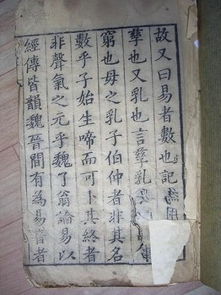 故又曰易者數也記
孳也又乳也言孳乳
窮也母之乳子伯仲者非其名
數乎子始生啼而可卜其終者
非聲氣之元乎魏了翁論易以
經傳皆韻魏晉間有為易音者